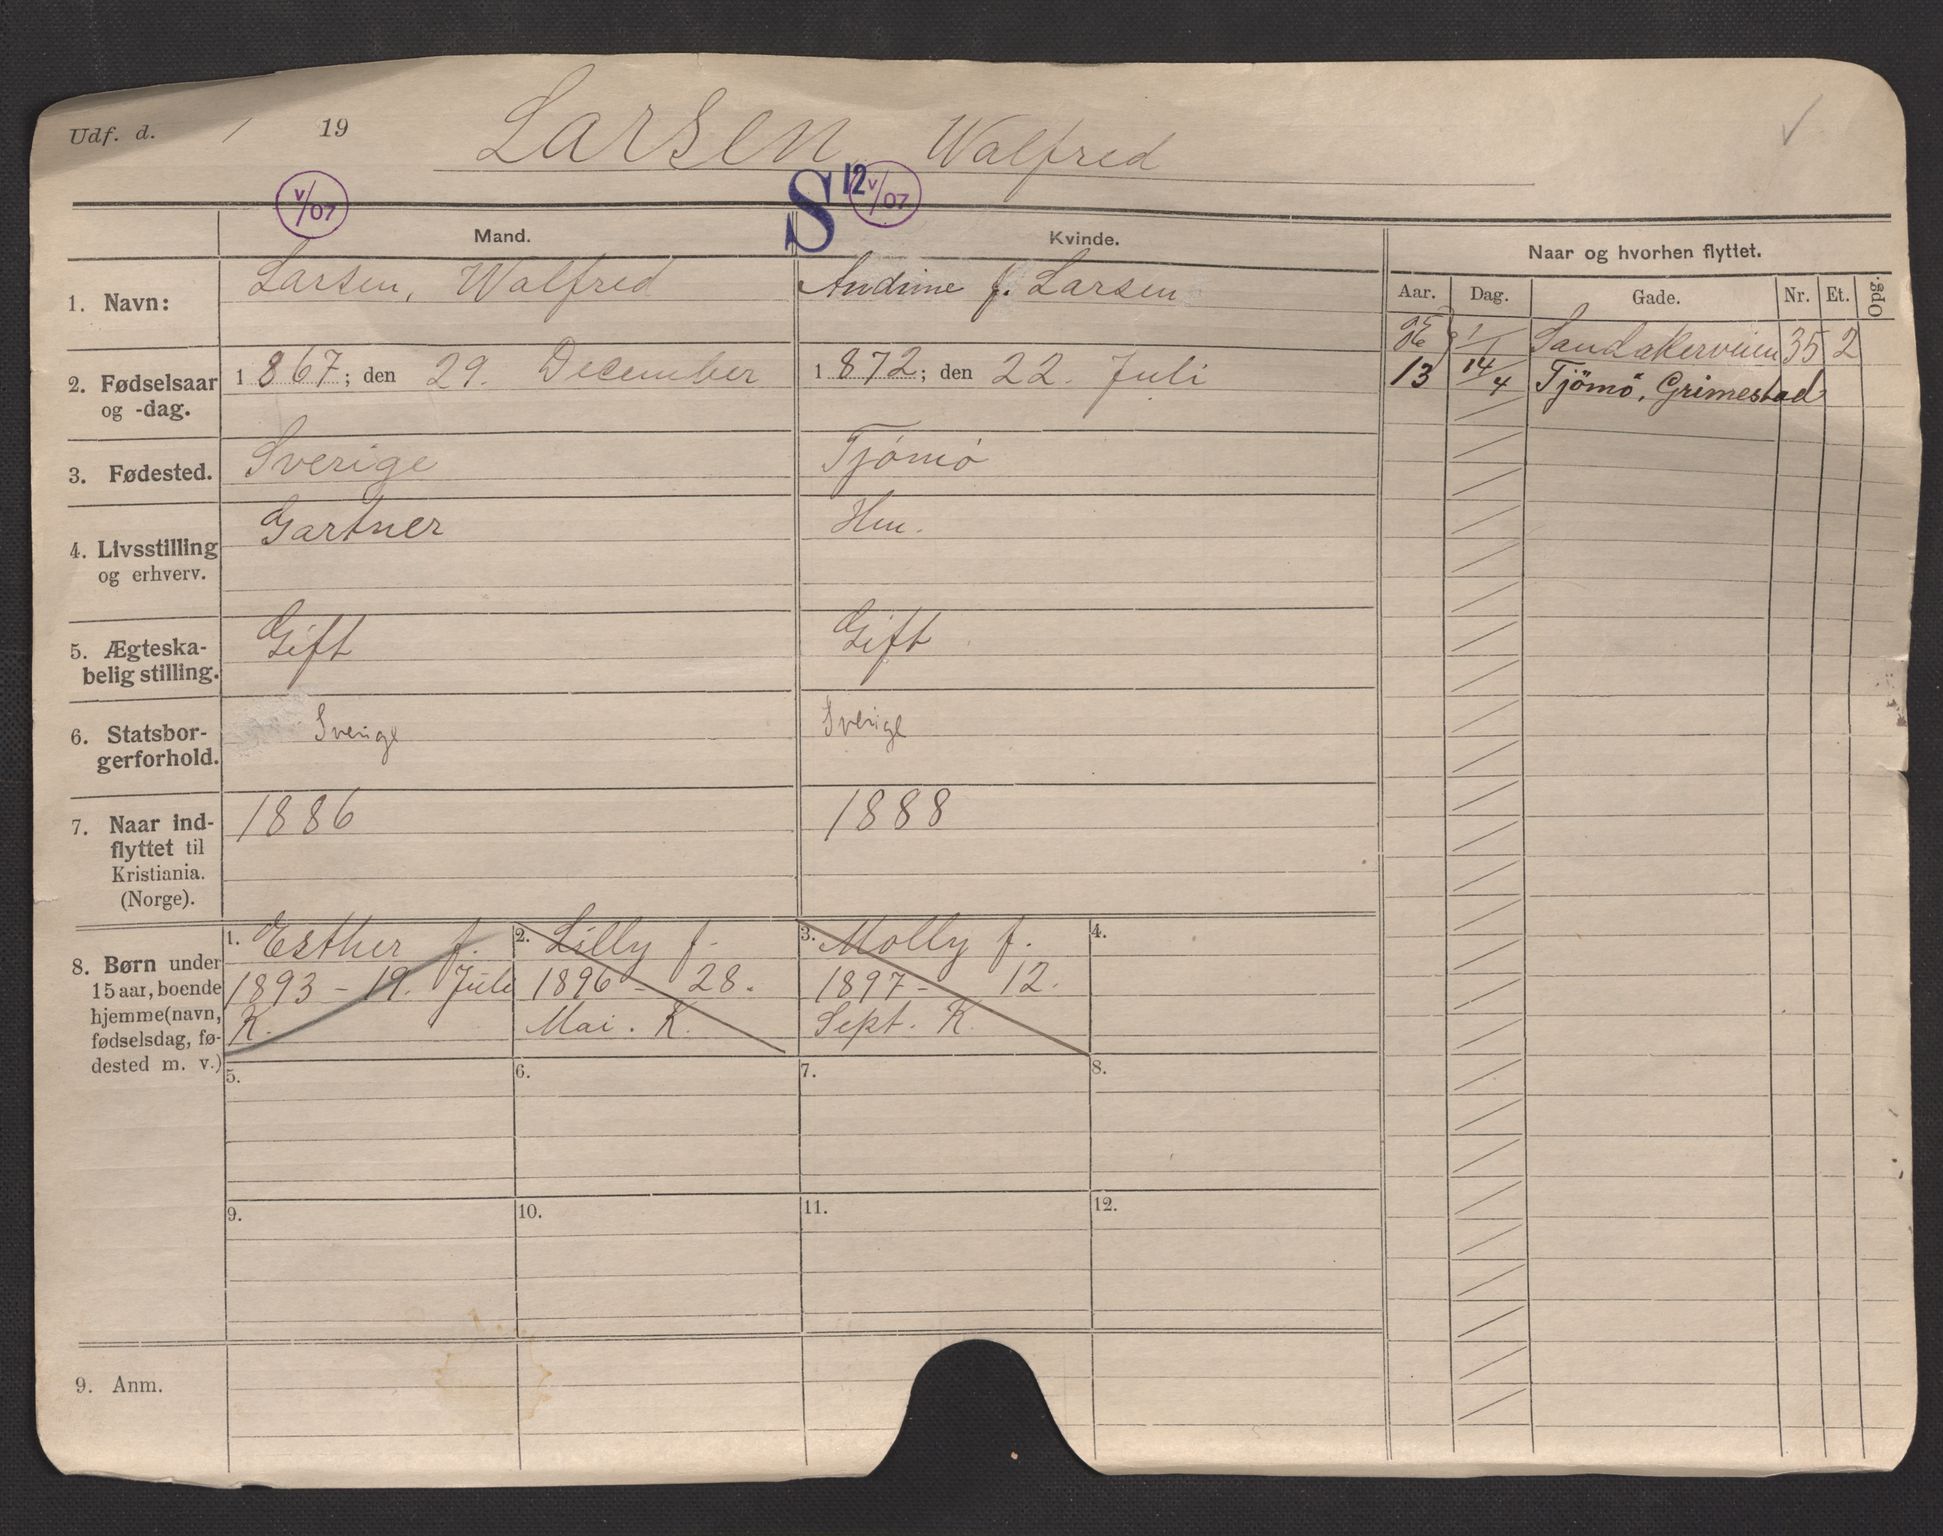 Udf. d. / 19 Larsen, Walfred
V/07 S 12 V/07
Mand. Kvinde. Naar og hvorhen flyttet.
Aar. Dag. Gade. Nr. Et. Opg.
1. Navn: Larsen, Walfred Andrine f. Larsen
1/1 Sandakerveien 35 2
13 14/4 Tjömö, Grimestad
2. Fødselsaar og -dag. 1867; den 29. December 1872; den 22. Juli
3. Fødested. Sverige Tjömö
4. Livsstilling og erhverv. Gartner Hm.
5. Ægteska-
belig stilling. Gift Gift
6. Statsbor-
gerforhold. Sverige Sverige
7. Naar ind-
flyttet til
Kristiania.
(Norge). 1886 1888
8. Børn under
15 aar, boende
hjemme (navn,
fødselsdag, fø-
dested m. v.)
1. Esther f.
1893 - 19. Juli
K.
2. Lilly f.
1896 - 28.
Mai. K.
3. Molly f.
1897 - 12.
Sept. K.
4.
5. 6. 7. 8.
9. 10. 11. 12.
9. Anm.